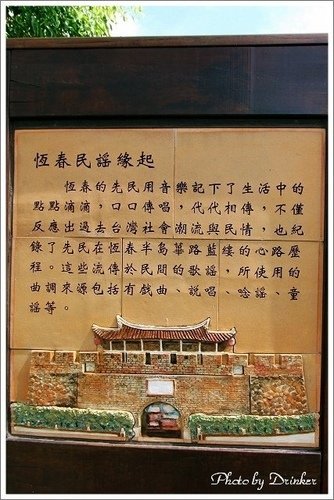 恆春民謠緣起
恆春的先民用音樂記下了生活中的
點點滴滴，口口傳唱，代代相傳，不僅
反應出過去台灣社會潮流與民情，也紀
錄了先民在恆春半島篳路藍縷的心路歷
程。這些流傳於民間的歌謠，所使用的
曲調來源包括有戲曲、說唱、唸謠、童
謠等。
Photo by Drinker